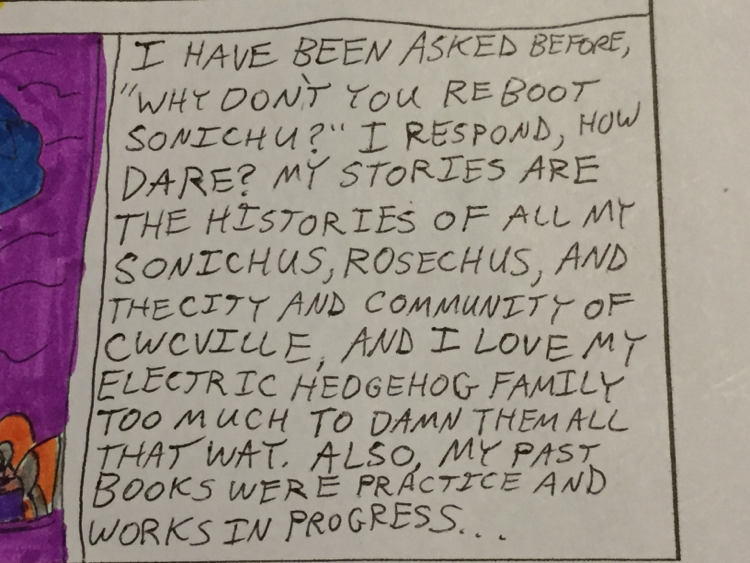 I HAVE BEEN ASKED BEFORE,
"WHY DON'T YOU REBOOT
SONICHU?" I RESPOND, HOW
DARE? MY STORIES ARE
THE HISTORIES OF ALL MY
SONICHUS, ROSECHUS, AND
THE CITY AND COMMUNITY OF
CWCVILLE, AND I LOVE MY
ELECTRIC HEDGEHOG FAMILY
TOO MUCH TO DAMN THEM ALL
THAT WAY. ALSO, MY PAST
BOOKS WERE PRACTICE AND
WORKS IN PROGRESS...